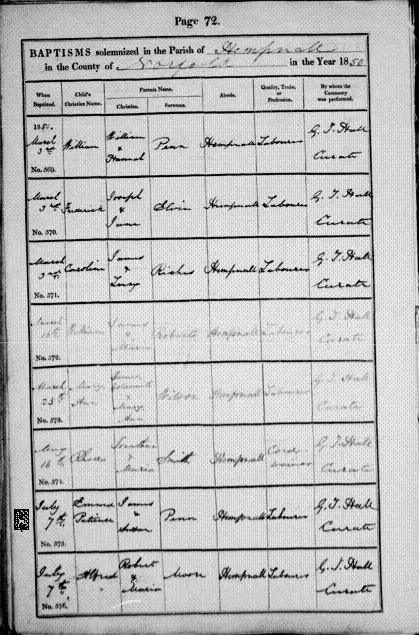 Page 72.
BAPTISMS solemnized in the Parish of Hempnall
in the County of Norfolk in the Year 1850
When Baptized. Child's Christian Name. Parents Name. Christian. Surname. Abode. Quality, Trade, or Profession. By whom the Ceremony was performed.
1850. March 3rd William William & Hannah Penn Hempnall Labourer G. T. Hall Curate
No. 569.
March 3rd Fredrick Joseph & Jane Hempnall Labourer G. T. Hall Curate
No. 570.
March 3rd Caroline James & Lucy Riches Hempnall Labourer G. T. Hall Curate
No. 571.
March William James & Maria Roberts Hempnall Labourer G. T. Hall Curate
No. 572.
March 25th Mary Ann James & Mary Ann Wilson Hempnall Labourer G. T. Hall Curate
No. 573.
May 16th Rhoda Jonathan & Maria Smith Hempnall Cordwainer G. T. Hall Curate
No. 574.
July 7th Emma Patience James & Susan Penn Hempnall Labourer G. T. Hall Curate
No. 575.
July 7th Alfred Robert & Maria Moore Hempnall Labourer G. T. Hall Curate
No. 576.